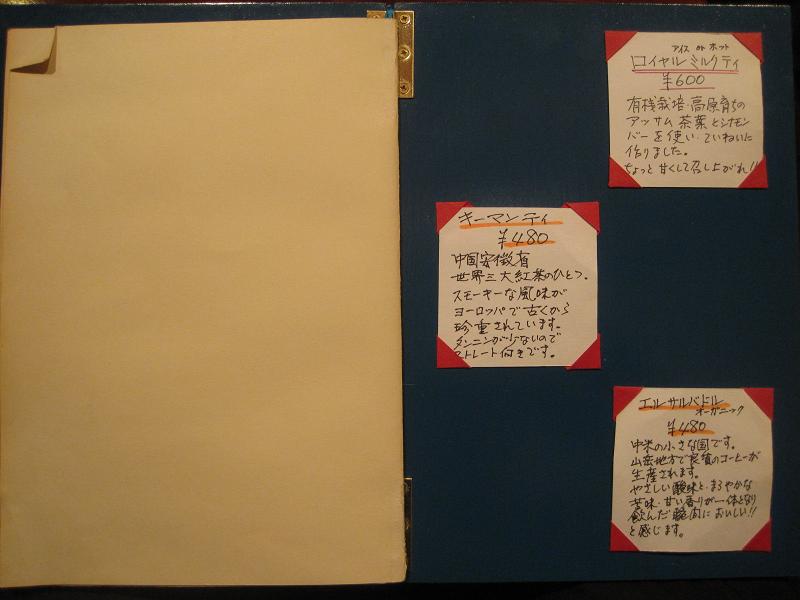 アイス or ホット
ロイヤルミルクティ
¥600
有機栽培・高原育ちの
アッサム茶葉とシナモン
バーを使い・ていねいに
作りました。
ちょっと甘くして召し上がれ!!
キーマンティ
¥480
中国安徽省
世界三大紅茶のひとつ。
スモーキーな風味が
ヨーロッパで古くから
珍重されています。
タンニンが少ないので
ストレート向きです。
エルサルバドル
オーガニック
¥480
中米の小さな国です。
山岳地方で良質のコーヒーが
生産されます。
やさしい酸味と・まろやかな
苦味・甘い香りが一体となり
飲んだ瞬間においしい!!
と感じます。